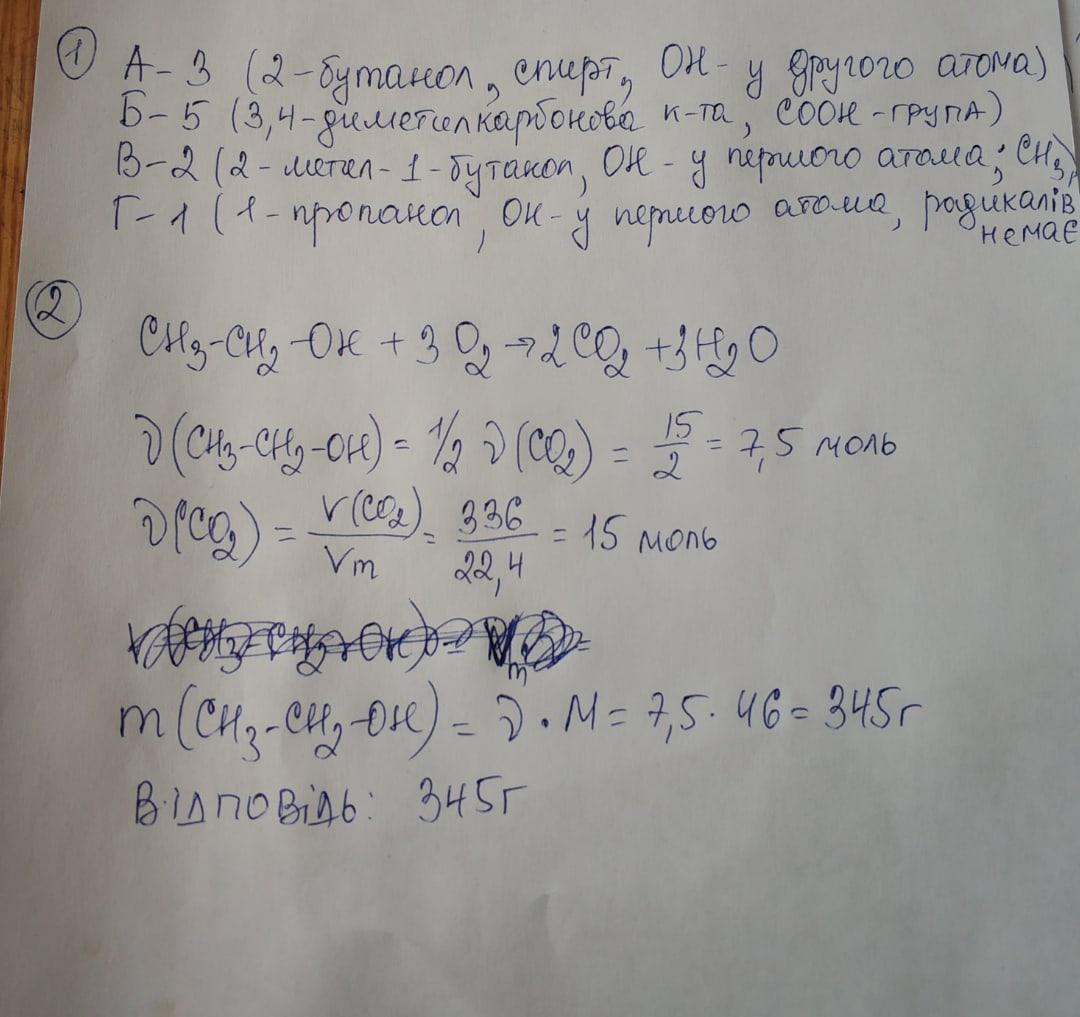 1
А - 3 (2-бутанол, спирт, ОН - у другого атома)
Б - 5 (3,4-диметилкарбонова к-та, СООН - група)
В - 2 (2-метил-1-бутанол, ОН - у першого атома; CH3)
Г - 1 (1-пропанол, ОН - у першого атома, радикалів
немає
2
CH3-CH2-OH + 3O2 → 2CO2 + 3H2O
ν(CH3-CH2-OH) = 1/2 ν(CO2) = 15/2 = 7,5 моль
ν(CO2) = V(CO2)/Vm = 336/22,4 = 15 моль
m(CH3-CH2-OH) = ν · M = 7,5 · 46 = 345г
Відповідь: 345г